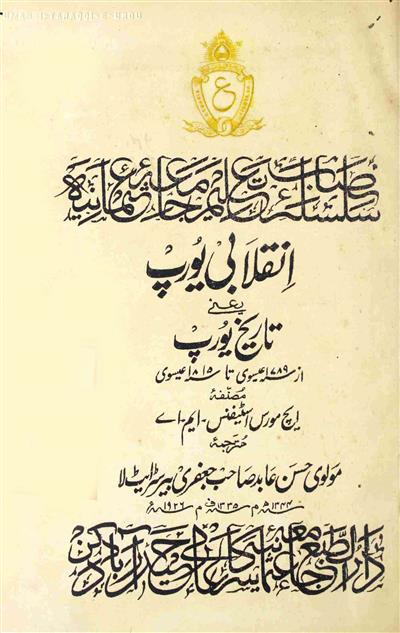 ANJUMAN-E-TARAQQI-E-URDU
ع
سلسلہ نصاب تعلیم جامعہ عثمانیہ
انقلابی یورپ
یعنے
تاریخ یورپ
از ۱۷۸۹ عیسوی تا ۱۸۱۵ عیسوی
مصنفہ
ایچ مورس اسٹیفنس - ایم - اے
مترجمہ
مولوی حسن عابد صاحب جعفری بیرسٹرایٹ لا
۱۳۴۴ھ م ۱۳۳۵ف م ۱۹۲۶ء
دارالطبع جامعہ عثمانیہ سرکار عالی حیدرآباد دکن